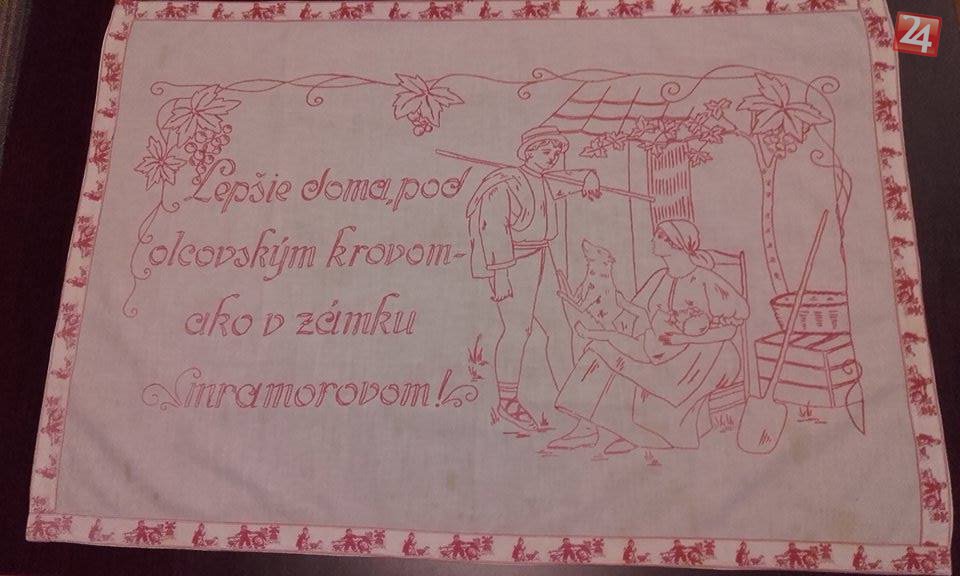 24
Lepšie doma, pod
olcovským krovom-
ako v zámku
mramorovom!